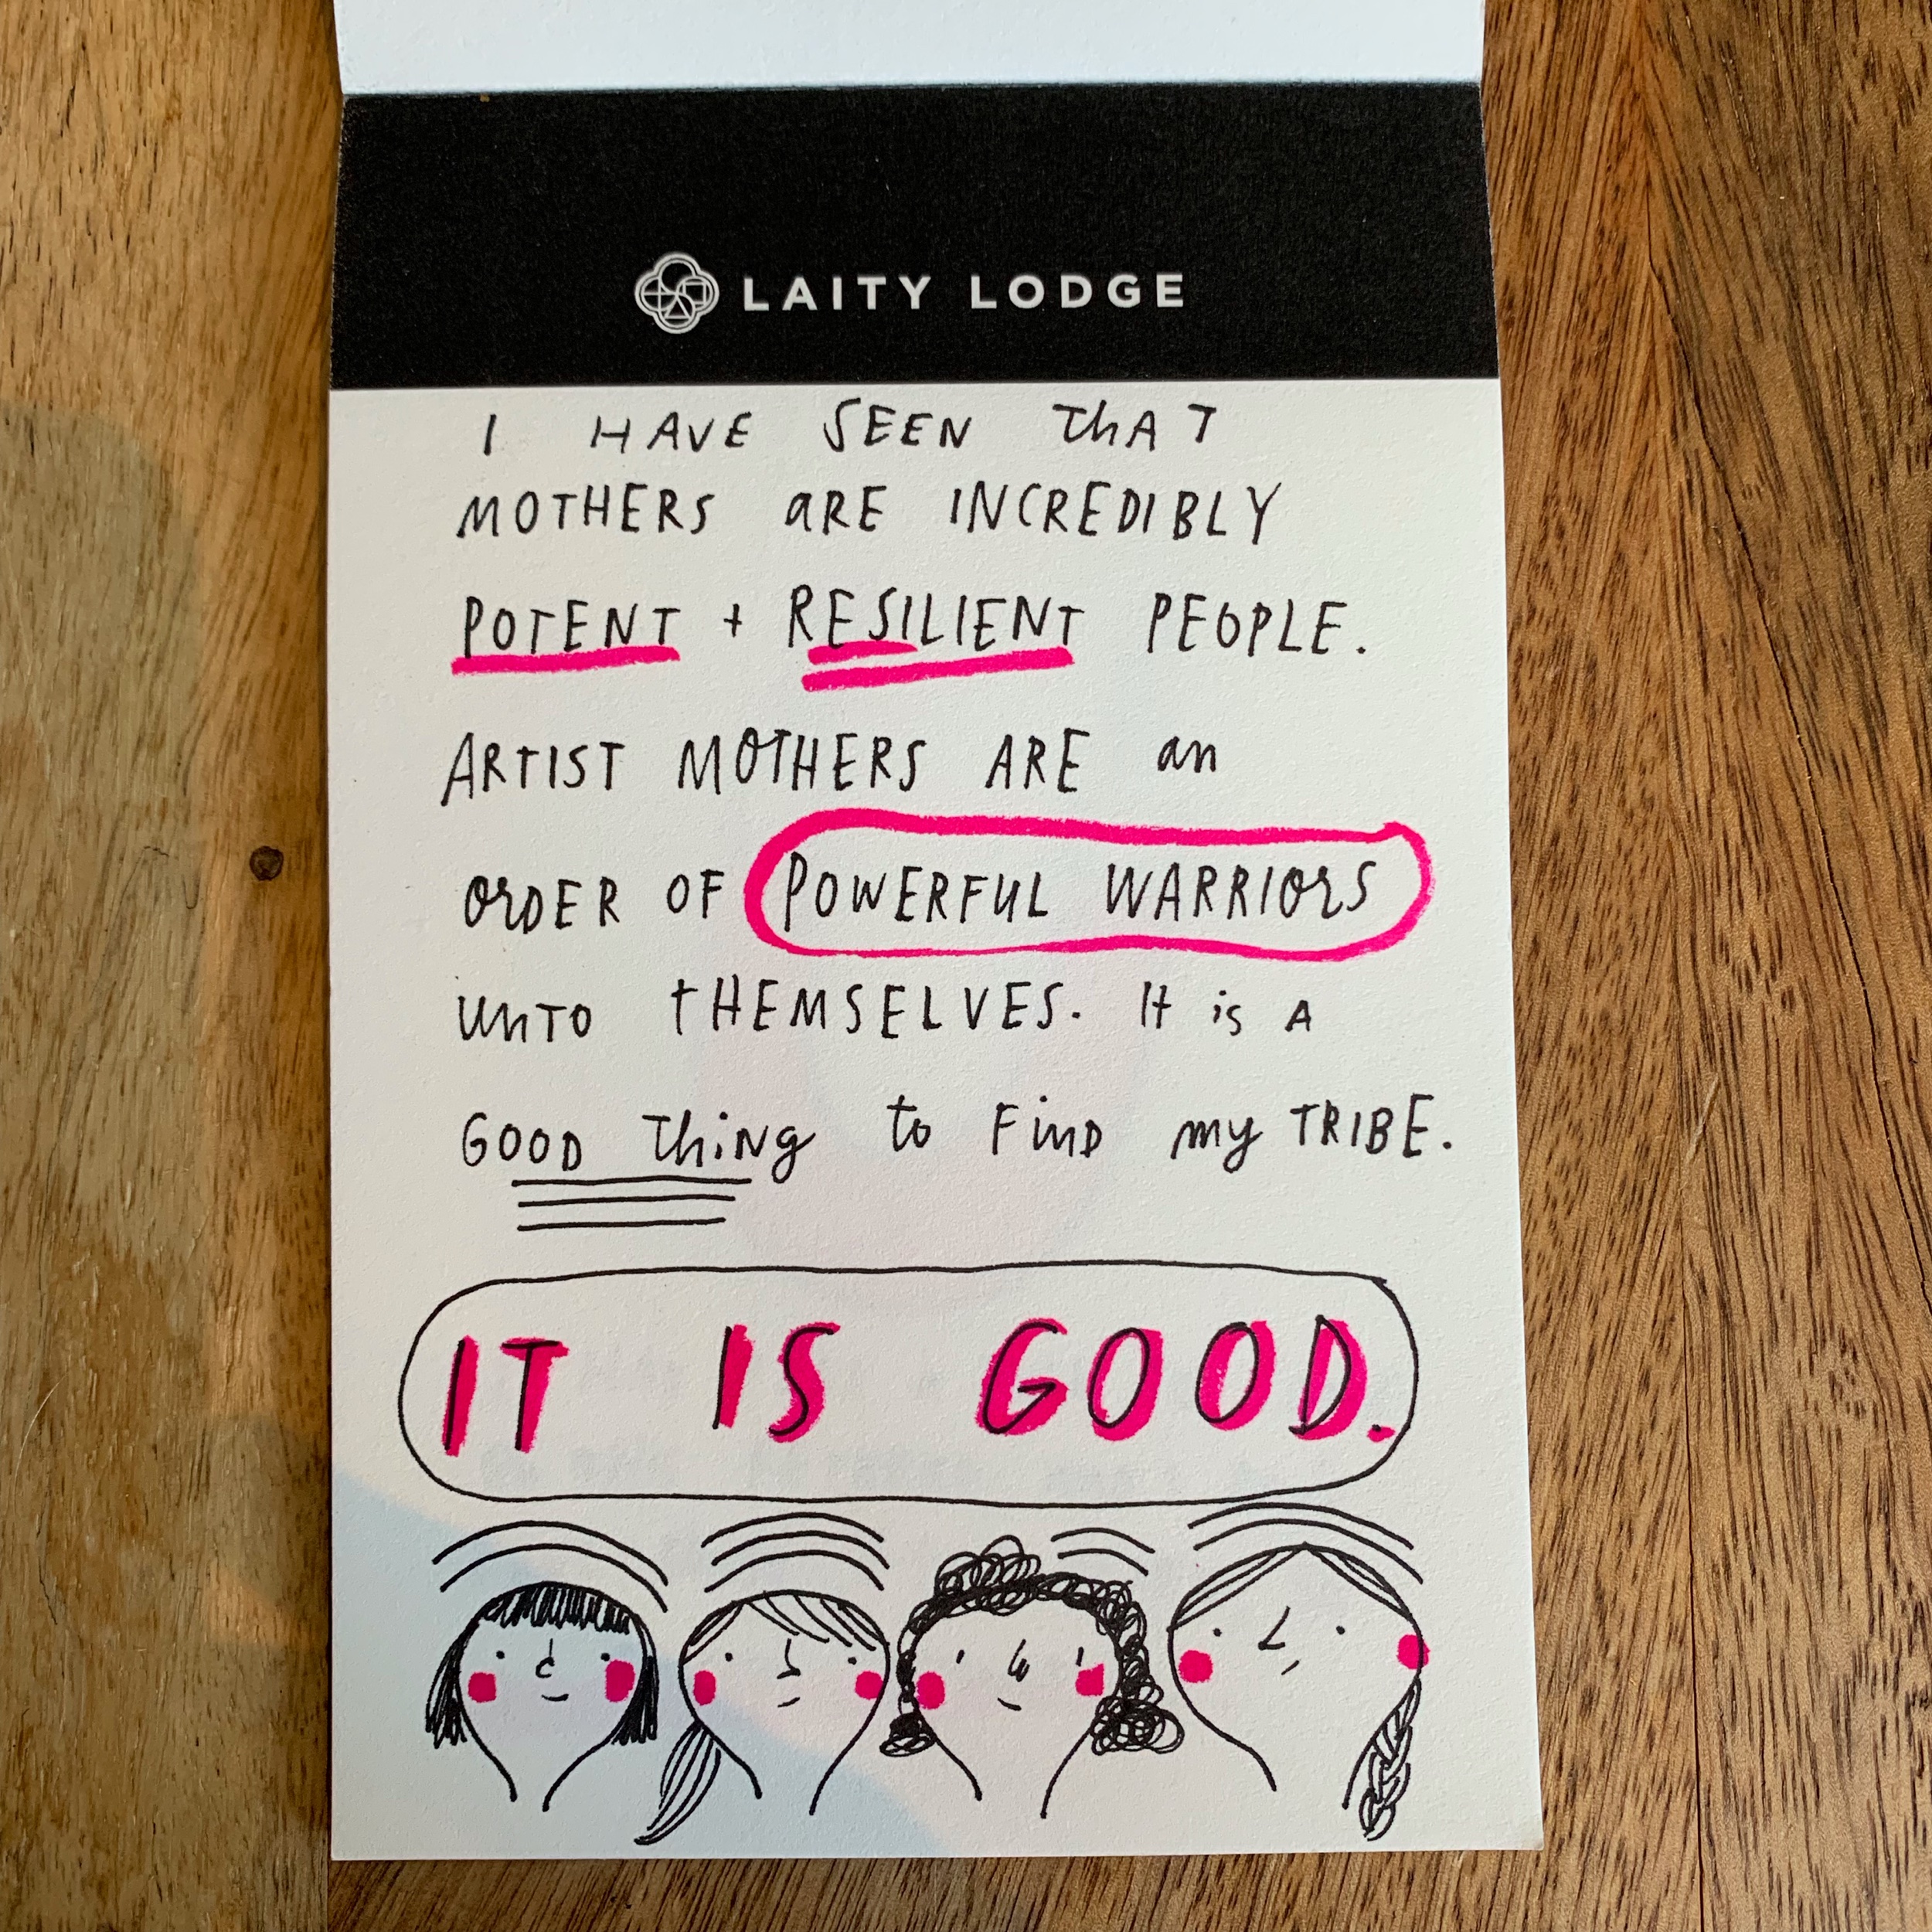 LAITY LODGE
I HAVE SEEN THAT
MOTHERS aRE INCREDIBLY
POTENT + RESILIENT PEOPLE.
ARTIST MOTHERS ARE an
ORDER OF POWERFUL WARRIORS
UNTO THEMSELVES. It is A
GOOD THING to FIND my TRIBE.
IT IS GOOD.